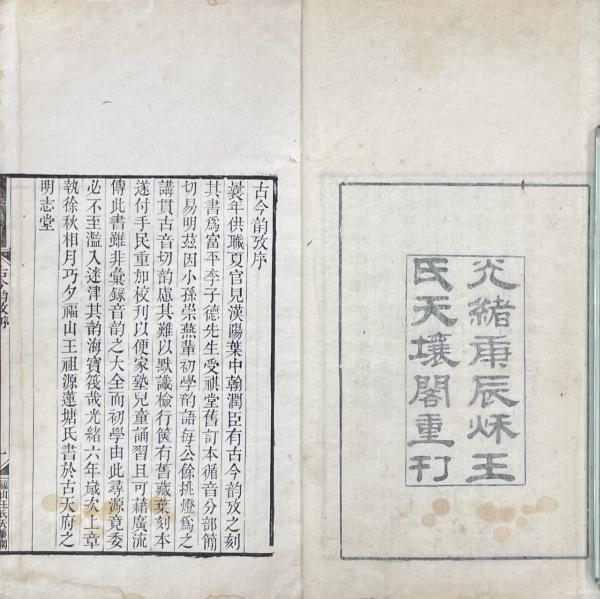 光緒庚辰秌王
氏天壤閣重刊
古今韵攷序
曩年供職夏官見漢陽葉中翰潤臣有古今韵攷之刻
其書爲富平李子德先生受祺堂舊訂本循音分部簡
切易明茲因小孫崇燕輩初學韵語每公餘挑燈爲之
講貫古音切韵慮其難以默識檢行篋有舊藏葉刻本
遂付手民重加校刊以便家塾兒童誦習且可藉廣流
傳此書雖非彙錄音韵之大全而初學由此尋源竟委
必不至濫入迷津其韵海寶筏哉光緒六年歲次上章
執徐秋相月巧夕福山王祖源蓮塘氏書於古天府之
明志堂
古今韵攷序
一